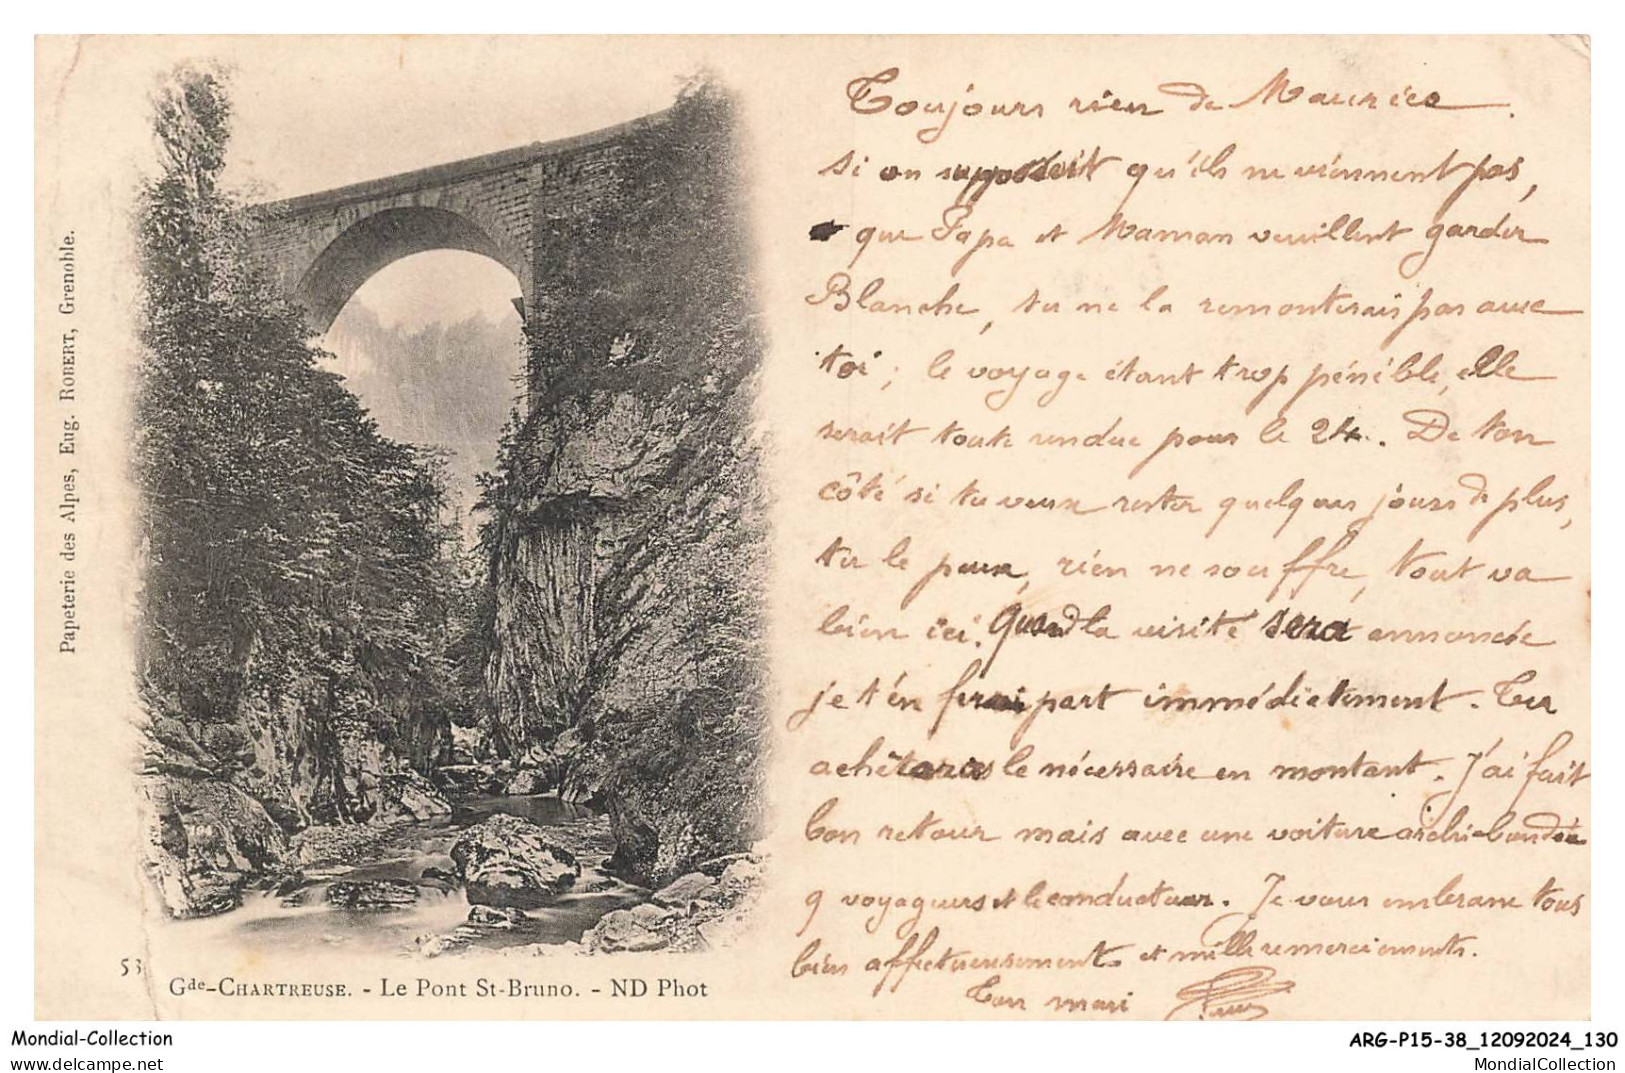 Toujours rien de Maurice.
si on supposait qu'ils ne viennent pas,
que Papa et Maman veuillent garder
Blanche, tu ne la remonterais pas avec
toi; le voyage étant trop pénible, elle
serait toute rendue pour le 24. De ton
côté si tu veux rester quelques jours de plus,
tu le peux, rien ne souffre, tout va
bien ici. Quand la visite sera annoncée
je t'en ferai part immédiatement. Tu
achèterais le nécessaire en montant. J'ai fait
bon retour mais avec une voiture archi-bondée
9 voyageurs et le conducteur. Je vous embrasse tous
bien affectueusement et mille remerciements.
Ton mari
Papeterie des Alpes, Eug. ROBERT, Grenoble.
53
Gde-CHARTREUSE. - Le Pont St-Bruno. - ND Phot
Mondial-Collection
mondialcollection.net
ARG-P15-38_12092024_130
MondialCollection